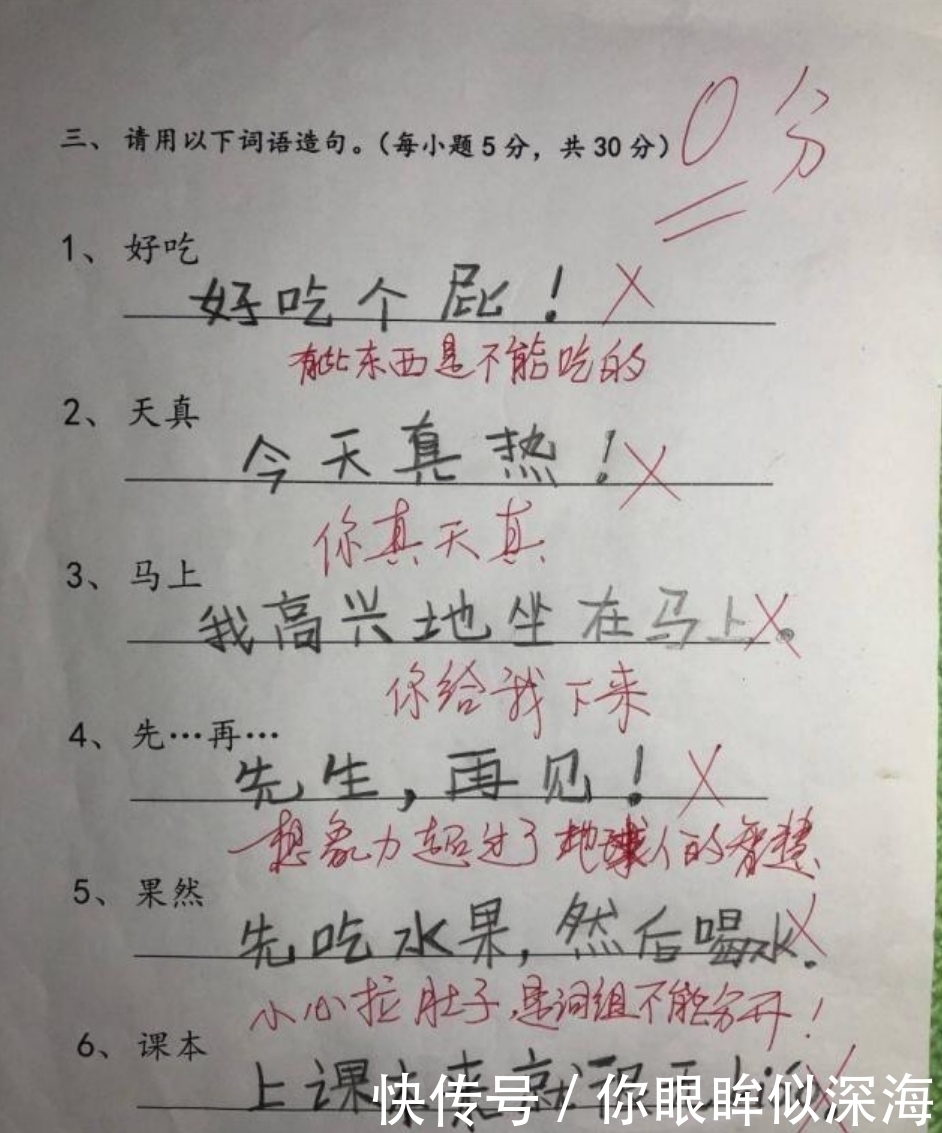 三、请用以下词语造句。（每小题5分，共30分）
0分
1、好吃
好吃个屁！
有些东西是不能吃的
2、天真
今天真热！
你真天真
3、马上
我高兴地坐在马上。
你给我下来
4、先…再…
先生，再见！
想象力超过了地球人的智慧
5、果然
先吃水果，然后喝水.
小心拉肚子,是词组不能分开！
6、课本
上课本来就
快传号 / 你眼眸似深海